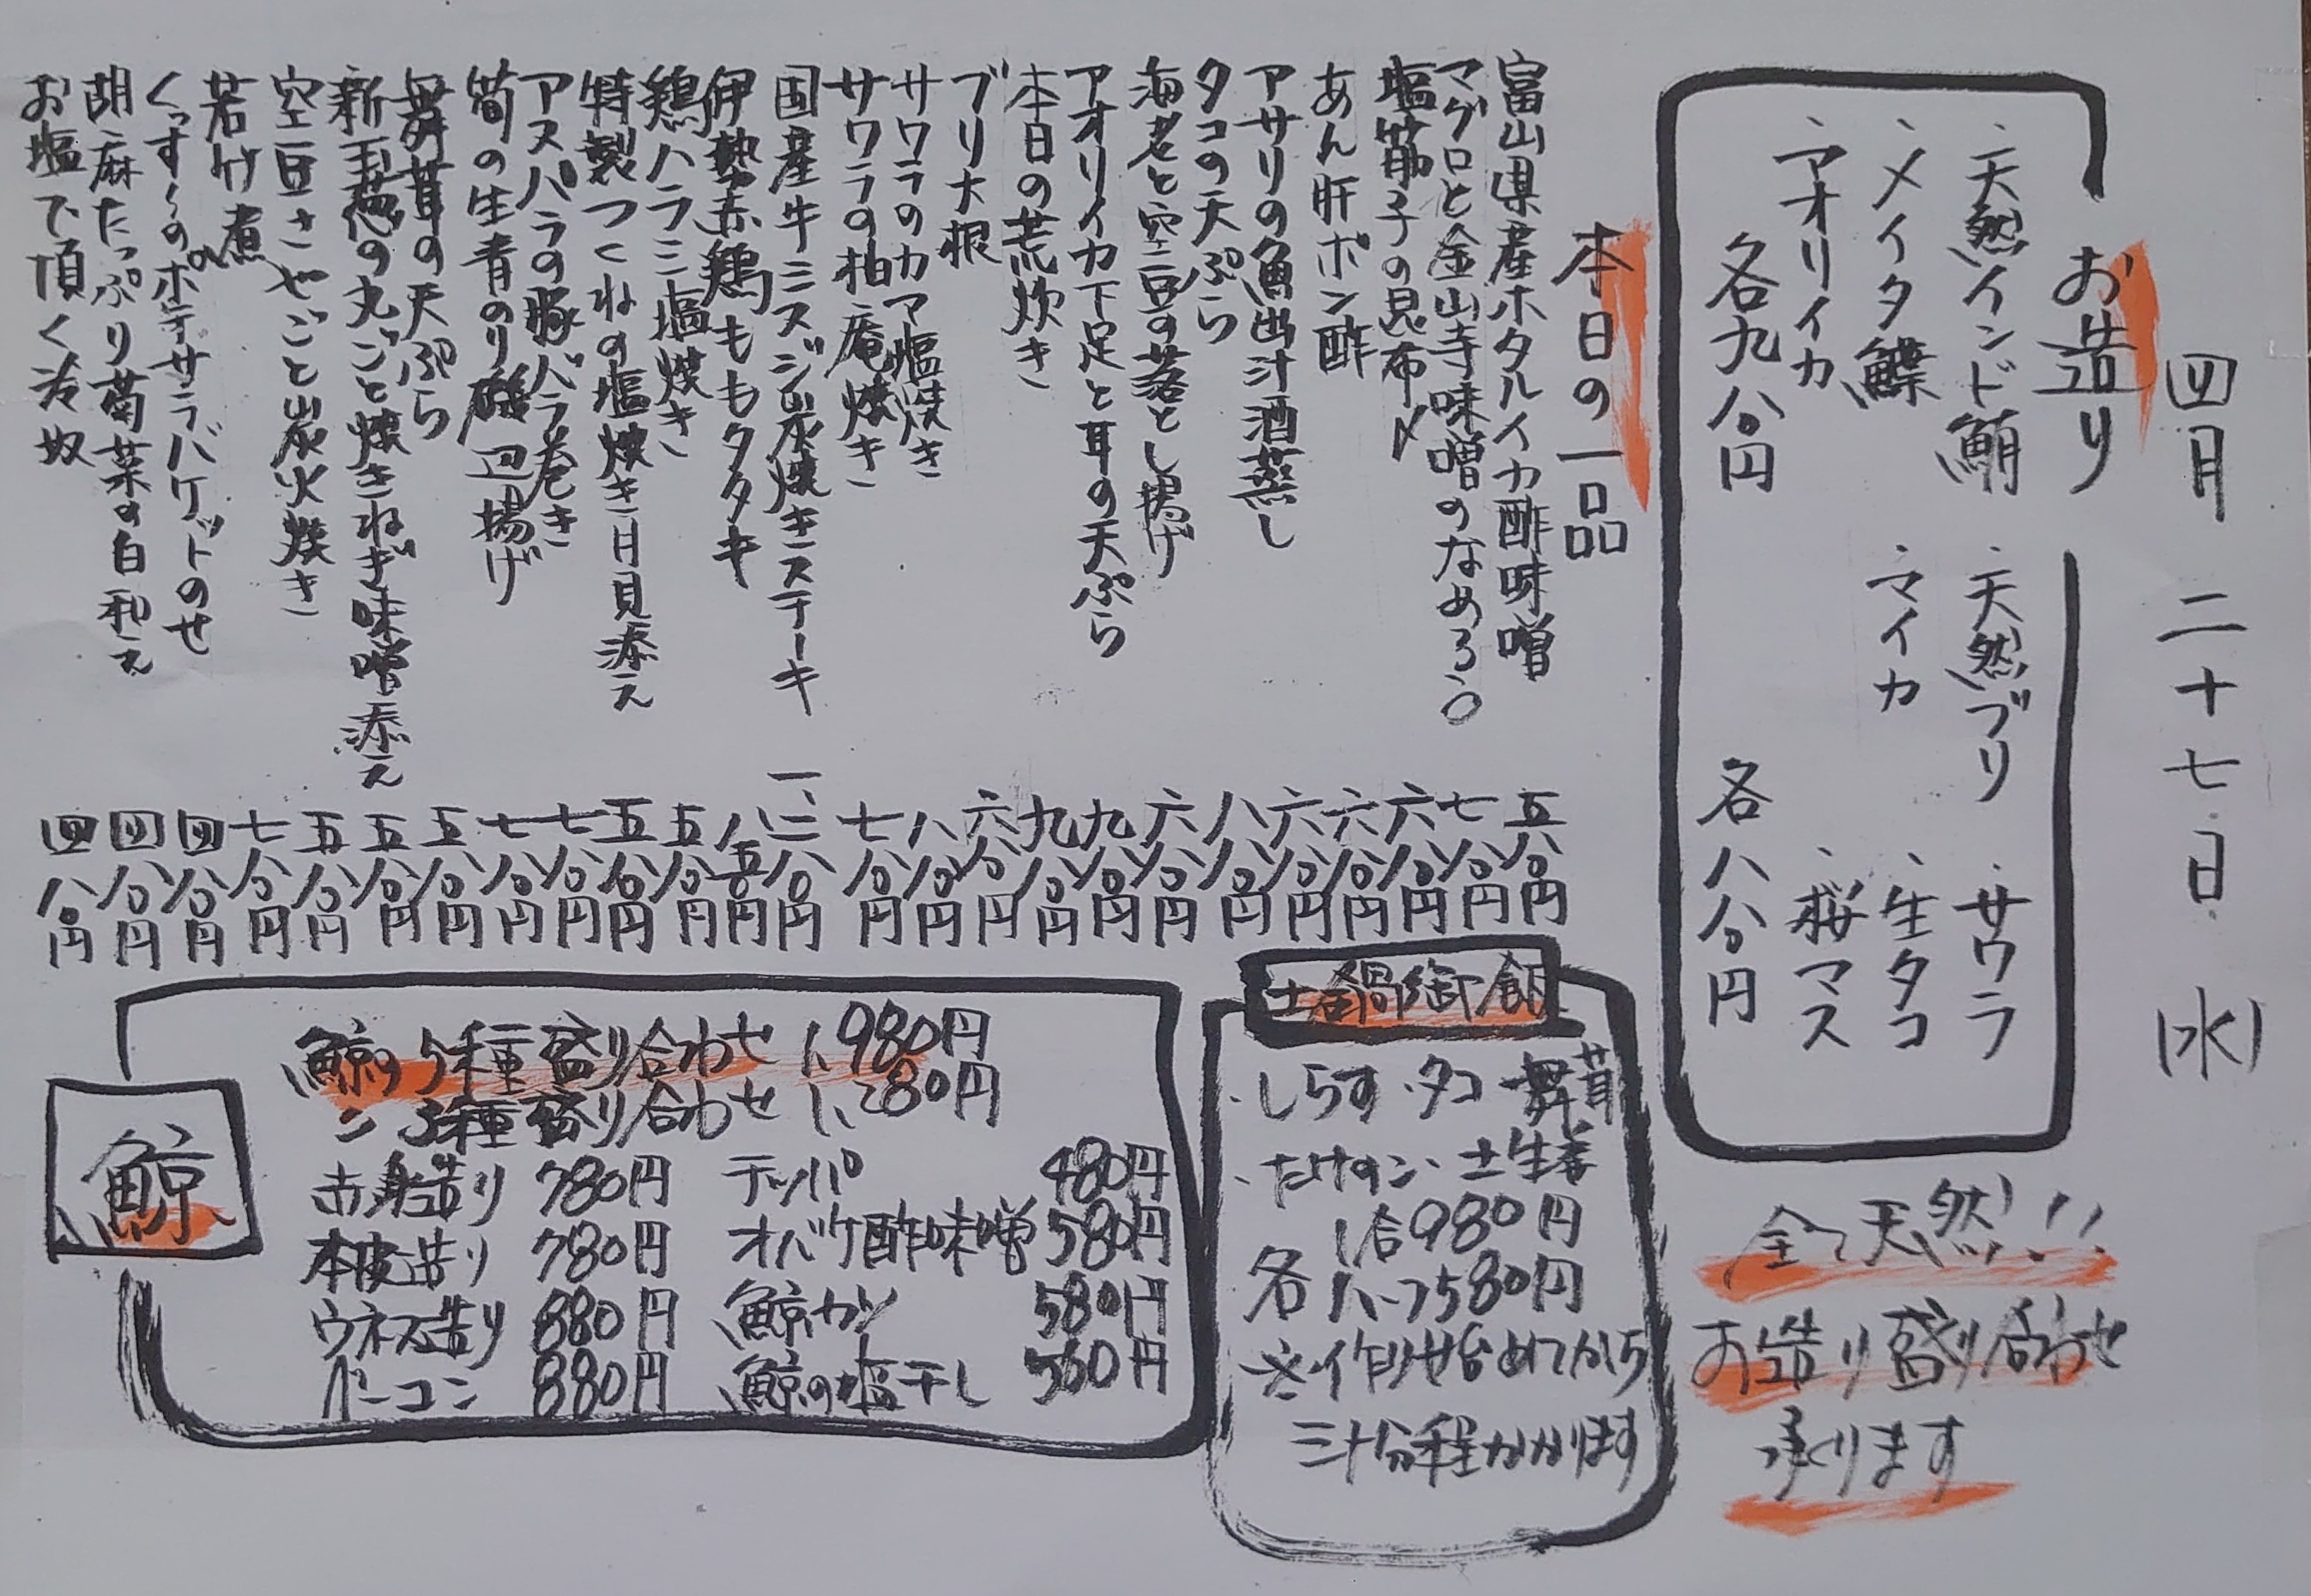 四月二十七日(水)
お造り
・天然インド鮪 ・天然ブリ ・サワラ
・メイタ鰈 ・マイカ ・生タコ
・アオリイカ ・桜マス
各九八〇円 各八八〇円
全て天然!!
お造り盛り合わせ
承ります
本日の一品
富山県産ホタルイカ酢味噌 五八〇円
マグロと金山寺味噌のなめろう 七八〇円
塩筋子の昆布〆 六八〇円
あん肝ポン酢 六八〇円
アサリの魚出汁酒蒸し 六八〇円
タコの天ぷら 八八〇円
海老と空豆の落とし揚げ 六八〇円
アオリイカ下足と耳の天ぷら 九八〇円
本日の荒炊き 九八〇円
ブリ大根 六八〇円
サワラのカマ塩焼き 八八〇円
サワラの柚庵焼き 七八〇円
国産牛ミスジ炭焼きステーキ 一、二八〇円
伊勢赤鶏ももタタキ 八五〇円
鶏ハラミ塩焼き 五八〇円
特製つくねの塩焼き月見添え 五八〇円
アスパラの豚バラ巻き 七八〇円
筍の生青のり磯辺揚げ 七八〇円
舞茸の天ぷら 五八〇円
新玉葱の丸ごと焼きねぎ味噌添え 五八〇円
空豆さやごと炭火焼き 五八〇円
若竹煮 七八〇円
くっす〜のポテサラバケットのせ 四八〇円
胡麻たっぷり菊菜の白和え 四八〇円
お塩で頂く冷奴 四八〇円
土鍋御飯
・しらす・タコ・舞茸
・たけのこ・土生姜
各 1合980円
ハーフ580円
※作り始めてから
三十分程かかります
鯨
鯨の5種盛り合わせ 1,980円
〃 3種盛り合わせ 1,280円
赤身造り 780円 テッパ 480円
本皮造り 780円 オバケ酢味噌 580円
ウネス造り 880円 鯨カツ 580円
ベーコン 880円 鯨の塩干し 560円